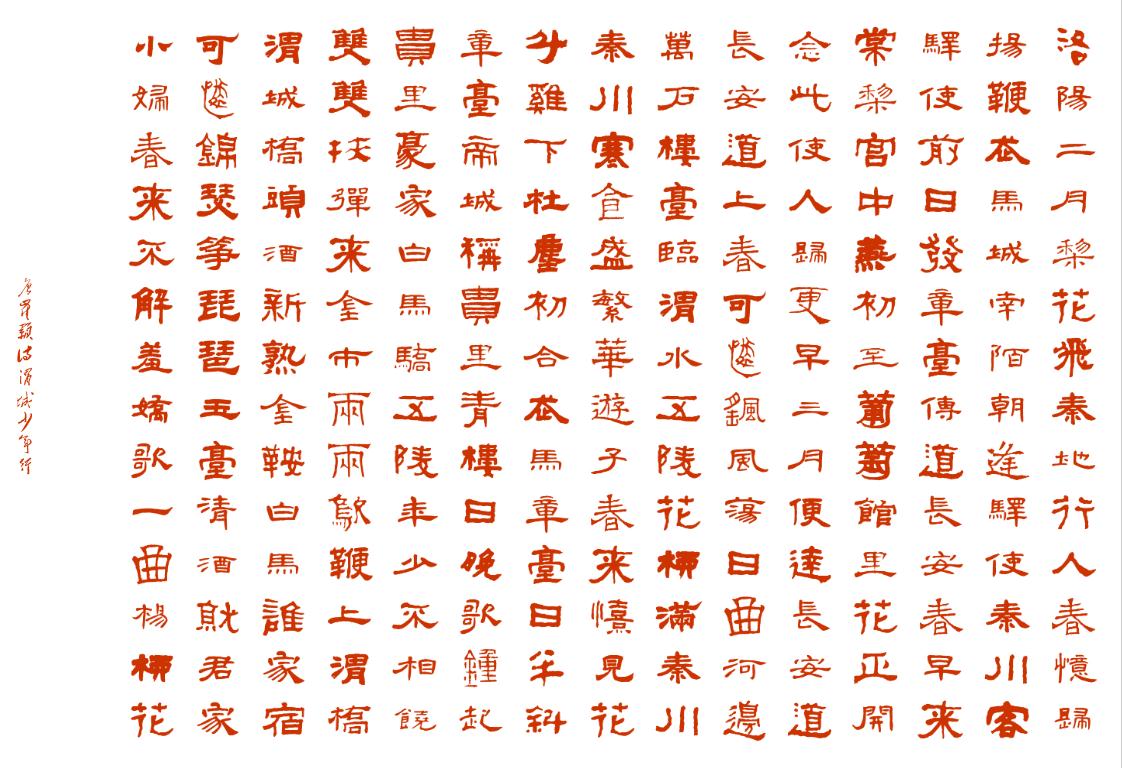 洛陽二月黎花飛秦地行人春憶歸
揚鞭走馬城南陌朝逢驛使秦川客
驛使前日發章臺傳道長安春早来
棠黎宮中燕初至葡萄館里花正開
念此使人歸更早三月便達長安道
長安道上春可憐颻風蕩日曲河邊
萬戶樓臺臨渭水五陵花柳滿秦川
秦川寒食盛繁華遊子春来憘見花
斗雞下杜塵初合走馬章臺日半斜
章臺帝城稱貴里青樓日晚歌鐘起
貴里豪家白馬驕五陵年少不相饒
雙雙挾彈来金市兩兩鳴鞭上渭橋
渭城橋頭酒新熟金鞍白馬誰家宿
可憐錦瑟箏琵琶玉臺清酒就君家
小婦春来不解羞嬌歌一曲楊柳花
唐崔顥詩渭城少年行